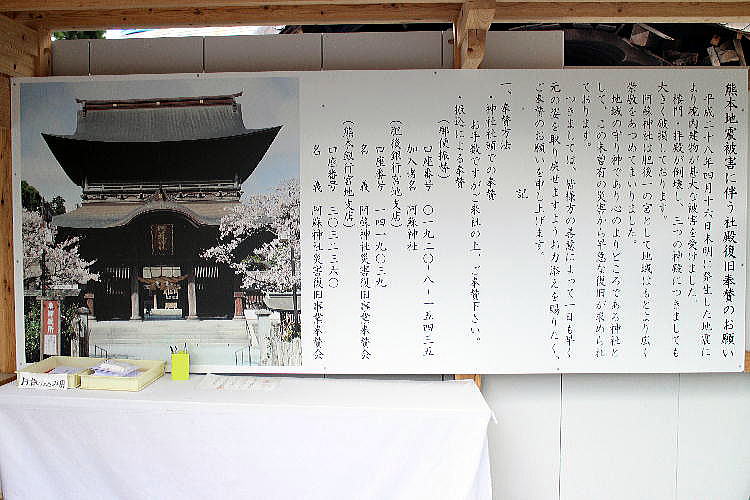 熊本地震被害に伴う社殿復旧奉賛のお願い
平成二十八年四月十六日未明に発生した地震に
より境内建物が甚大な被害を受けました。
楼門・拝殿が倒壊し、三つの神殿につきましても
大きく破損しております。
阿蘇神社は肥後一の宮として地域はもとより広く
崇敬をあつめてまいりました。
地域の守り神であり心のよりどころである神社と
して、この未曽有の災害から早急な復旧が求められ
ております。
つきましては、皆様方の善意によって一日も早く
元の姿を取り戻せますようお力添えを賜りたく、
ご奉賛のお願いを申し上げます。
記
一、奉賛方法
・神社社頭での奉賛
お手数ですがご来社の上、ご奉賛下さい。
・振込による奉賛
(郵便振替)
口座番号 〇一九二〇-八-一五四三五
加入者名 阿蘇神社
(肥後銀行宮地支店)
口座番号 一四一九〇三九
名義 阿蘇神社災害復旧事業奉賛会
(熊本銀行宮地支店)
口座番号 三〇三二三六〇
名義 阿蘇神社災害復旧事業奉賛会